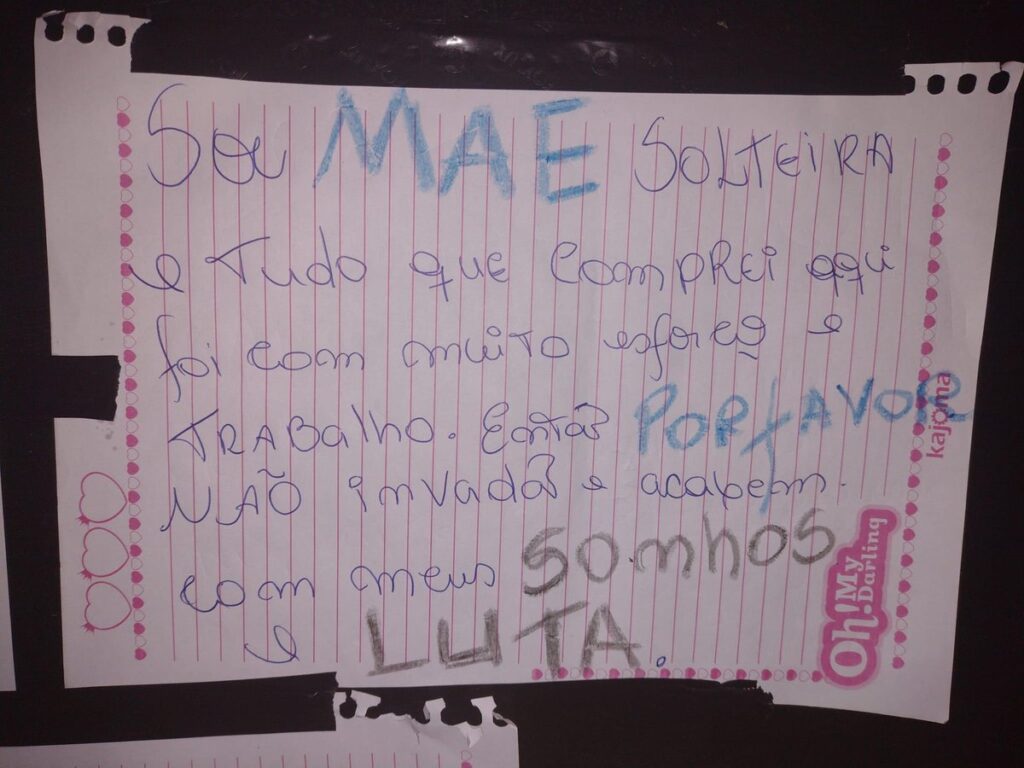 Sou MAE SOLTEIRA
e Tudo que comprei aqui
foi com muito esforço e
TRABalho. Então POR FAVOR
NÃO invadã e acabem.
com meus sonhos
e LUTA.
kajoma
Oh! My Darling